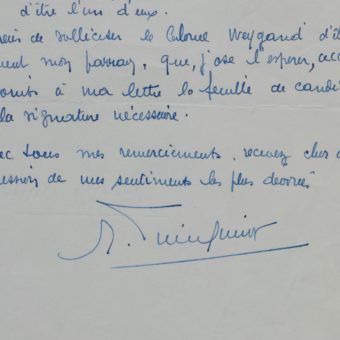 d'être l'un d'eux.
de solliciter le Colonel Weygand d'ê
mon parrain, que, j'ose l'espérer, acc
à ma lettre la feuille de candi
la signature nécessaire.
ec tous mes remerciements, recevez cher
ession de mes sentiments les plus dévoués